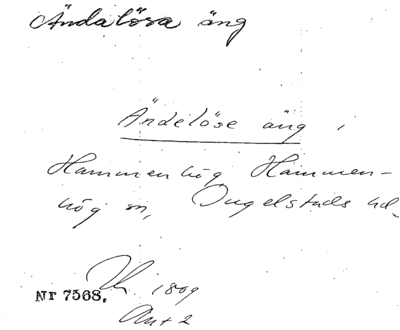 Ändalösa äng
Ändelöse äng i
Hammenhög Hammen-
hög sn, Ingelstads hd.
1809
Nr 7568.
Akt 2